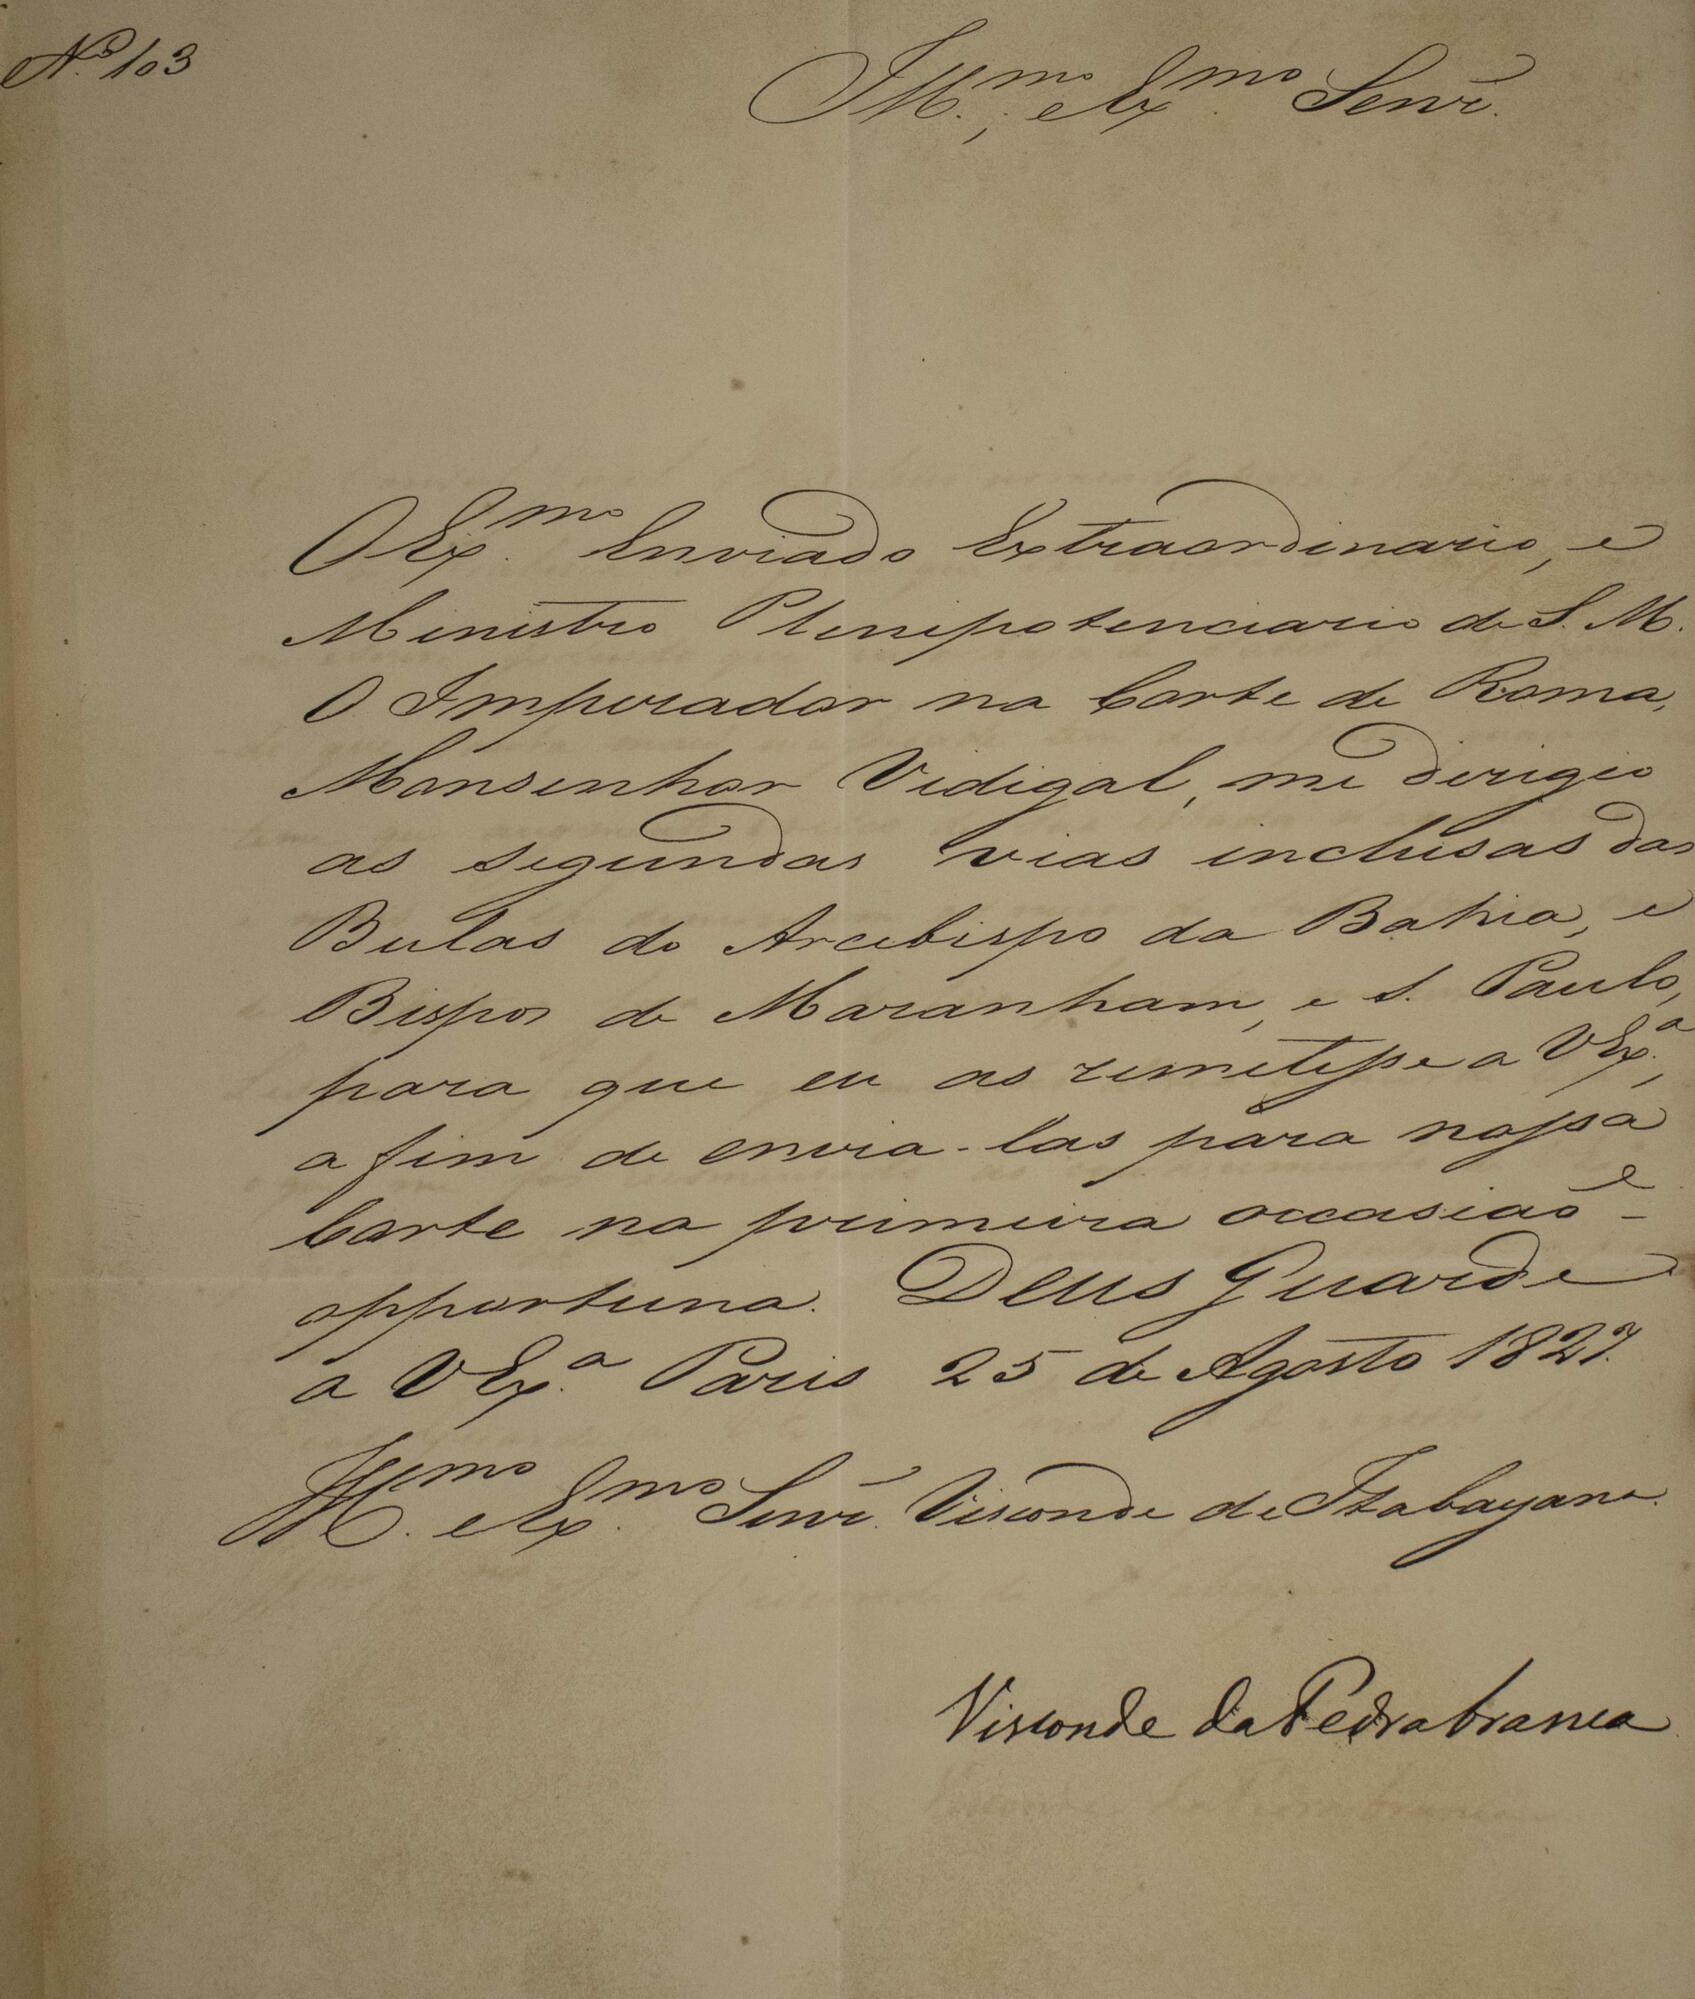 Nº 103
Illmo., e Exmo. Senr.
O Exmo. Enviado Extraordinario, e
Ministro Plenipotenciario de S. M.
O Imperador na Corte de Roma,
Monsenhor Vidigal, me dirigio
as segundas vias inclusas das
Bulas do Arcebispo da Bahia, e
Bispos de Maranham, e S. Paulo,
para que eu as remetesse a VExª.,
a fim de envia-las para nossa
Corte na primeira occasiaõ e
opportuna. Deus Guarde
a VExª. Paris 25 de Agosto 1827.
Illmo. e Exmo. Senr. Visconde de Itabayana.
Visconde da Pedrabranca